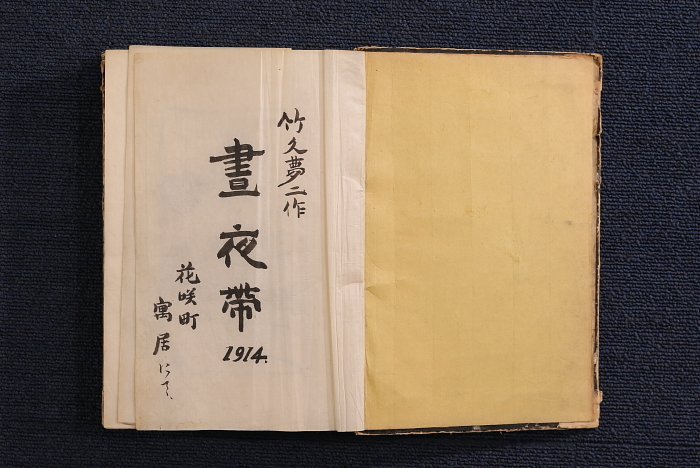 竹久夢二作
晝夜帶
1914.
花咲町
寓居にて、